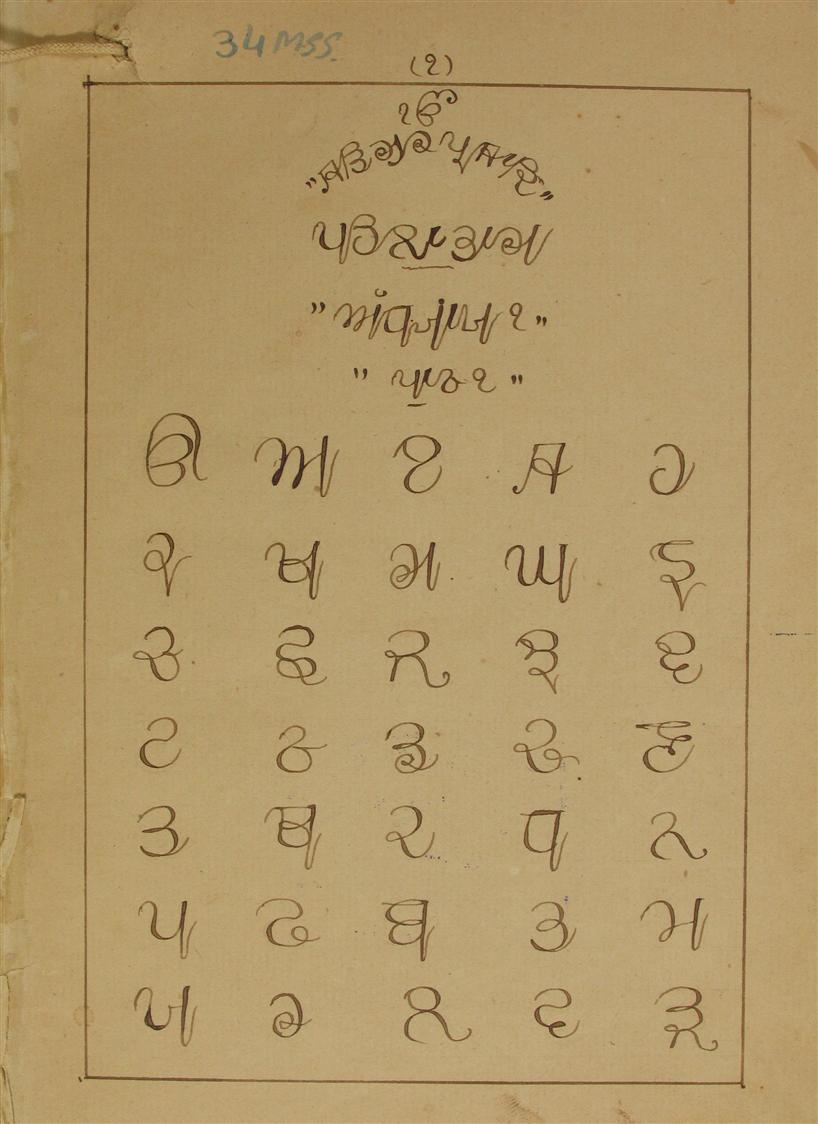 34 MSS.
(੧)
ੴ
"ਸਤਿਗੁਰ ਪ੍ਰਸਾਦਿ"
ਪਹਿਲਾ ਭਾਗ
੧"
"ਪਾਠ ੧"
ੳ ਅ ੲ ਸ ਹ
ਕ ਖ ਗ ਘ ਙ
ਚ ਛ ਜ ਝ ਞ
ਟ ਠ ਡ ਢ ਣ
ਤ ਥ ਦ ਧ ਨ
ਪ ਫ ਬ ਭ ਮ
ਯ ਰ ਲ ਵ ੜ